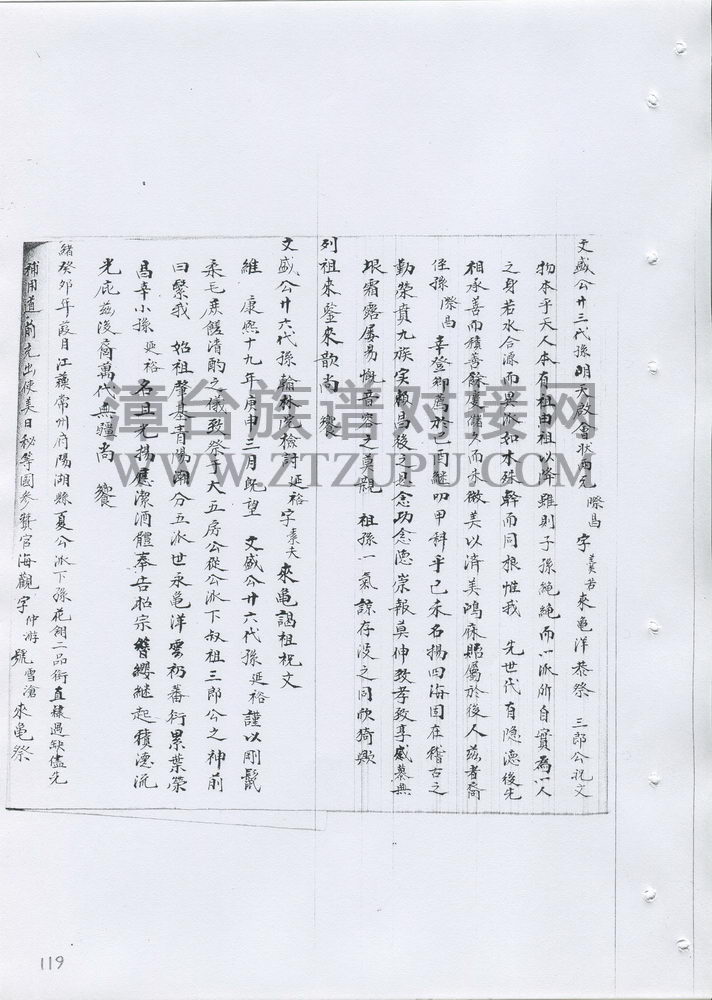 文盛公廿三代孫明天啟會狀兩元 際昌 字 羹若 來龜洋恭祭 三郎公祝文
物本乎天人本有祖由祖以降雖則子孫純純而一派所自實為一人
之身若水合源而異派如木殊幹而同根惟我 先世代有隱德後先
相承善而積善餘慶儲 而未微美以濟美鴻庥貽屬於後人茲者裔
侄孫 際昌 幸登鄉薦於乙酉繼叨甲科乎己未名揚四海固在稽古之
勤榮賁九族实賴昌後之 念功念德崇報莫伸致孝致享感慕無
垠霜露屢易慨音容之莫覩 祖孫一氣諒存沒之同欣猗歟
列祖來鑒來歆尚饗
文盛公廿六代孫翰林院檢討 延裕 字 來龜謁祖祝文
維 康熙十九年庚申三月既望 文盛公廿六代孫 延裕 謹以剛鬣
柔毛庶饈清酌之儀致祭于大五房公從公派下叔祖三郎公之神前
曰繄我 始祖肇基青陽 分五派世永龜洋雲礽蕃衍累葉榮
昌幸小孫 延裕 名且光揚 潔酒醴奉告祖宗 簪纓繼起積德流
光庇茲後裔萬代無疆尚 饗
緒癸卯年葭月江蘇常州府陽湖縣夏公派下孫花翎二品銜直隸遇缺儘先
補用道前充出使美日秘等國參贊官海觀字 仲游 號 雪滄 來龜祭
漳台族谱对接网
WWW.ZTZUPU.COM
119